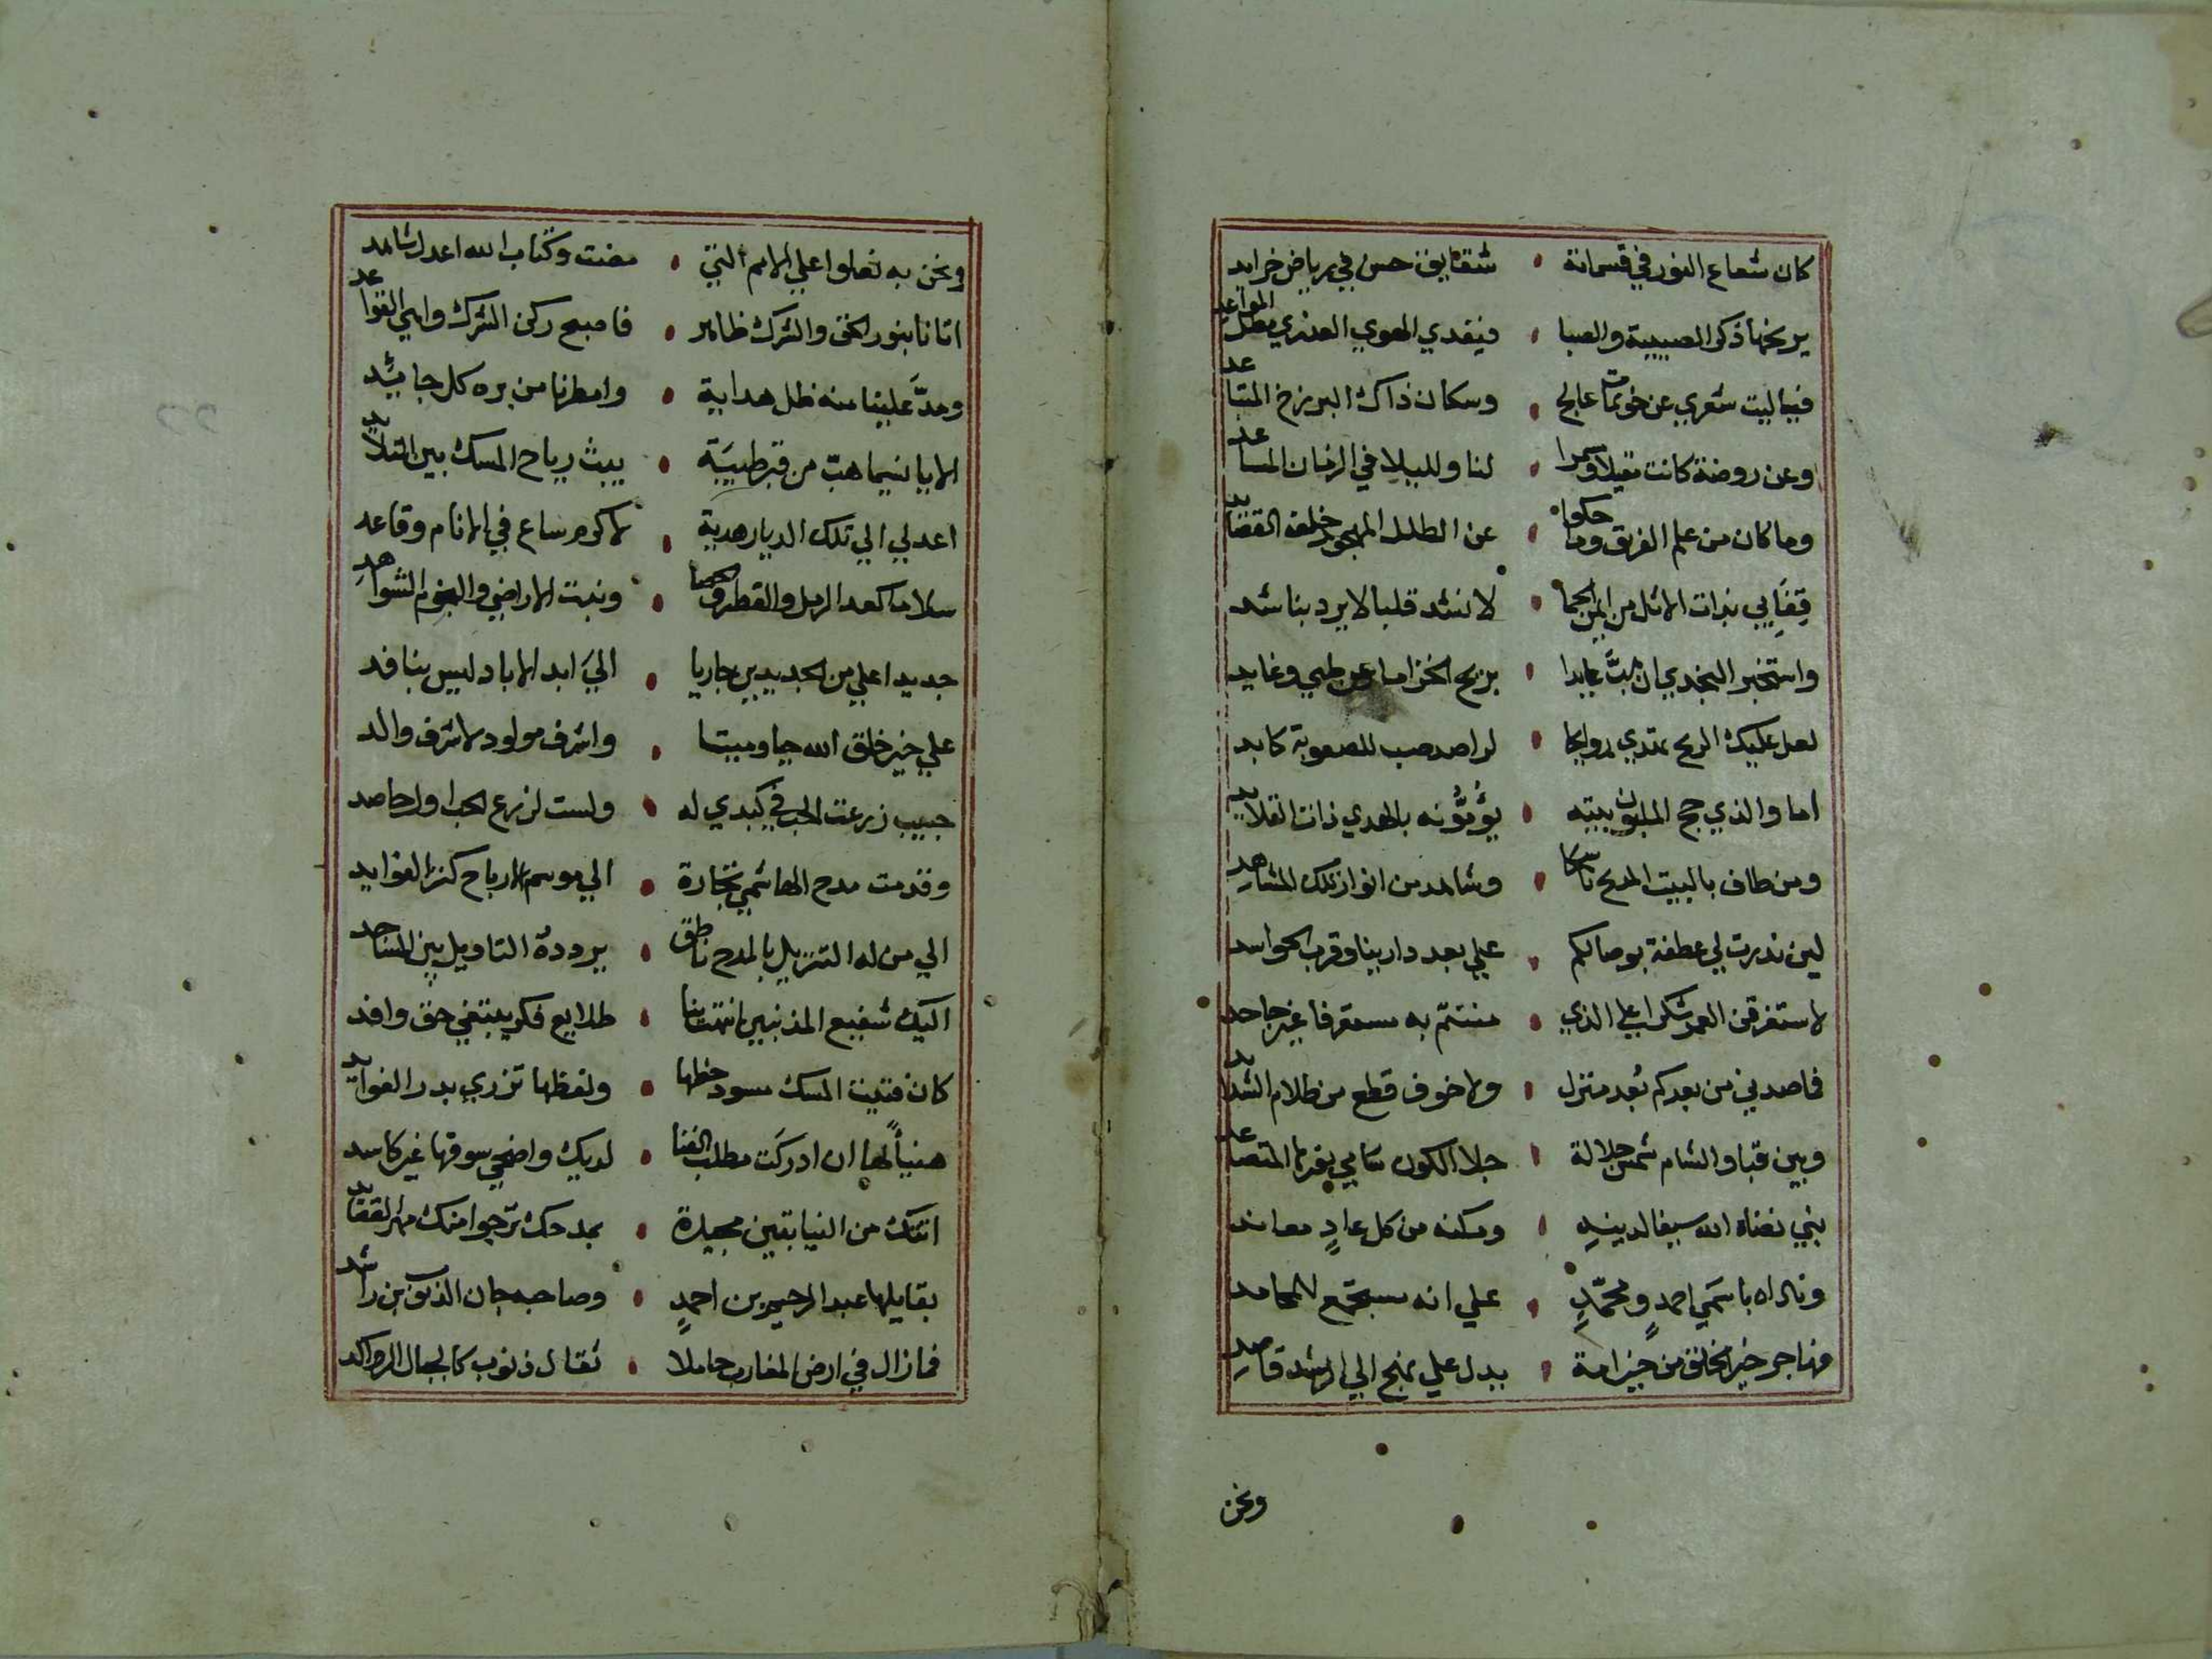 كان شعاع النور في قسماته • شقايق حسن في رياض خرايد
يرنحها ذكر الصبيبة والصبا • فيقدي الهوي العذري مطل المواعد
فياليت شعري عن خويمات عالج • وسكان ذاك البرزخ المتباعد
وعن روضة كانت مقيلا وسمرا • لنا ولليلا في الزمان المساعد
وما كان من علم الفريق وما حكوا • عن الطلل المهجور خلف القضايد
قفا بي بذات الاثل من ايمن الحما • لانشد قلبا لا يرد بناشد
واستخبر النجدي ان هب عايدا • بريح الخزاما عن طبي وغايد
لعل عليك الريح تهدي روايحا • لراصد صب للصعوبة كابد
اما والذي حج الملبون بيته • يؤمونه بالهدي ذات القلايد
ومن طاف بالبيت المدمح ناسكا • وشاهد من انوار تلك المشاهد
لين نذرت لي عطفة بوصالكم • علي بعد دارينا وقرب الحواسد
لاستغرقن العمر شكرا علي الذي • مننتم به معترفا غير جاحد
فما صدني من بعدكم بعد منزل • ولا خوف قطع من ظلام الشدايد
وبين قبا والشام شمس جلالة • جلا الكون سامي نورها المتصاعد
نبي نضاه الله سيفا لدينه • ومكنه من كل عاد معاند
وناداه باسمي احمد ومحمد • علي انه مستجمع للمحامد
مهاجر خير الخلق من خير امة • يدل علي نهج الي الرشد قاصد
ونحن
ونحن به نعلوا علي الامم التي • مضت وكتاب الله اعدل شاهد
اتانا بنور الحق والشرك ظاهر • فاصبح ركن الشرك واهي القواعد
ومد علينا منه ظل هداية • وامطرنا من بره كل جايد
الا يا نسيما هب من قبر طيبة • يبث رياح المسك بين التلايد
اعد لي الي تلك الديار هدية • لاكرم ساع في الانام وقاعد
سلاما كعد الرمل والقطر والحصا • ونبت الاراضي والنجوم الشواهد
جديدا علي مر الجديدين جاريا • الي ابد الاباد ليس بنافد
علي خير خلق الله حيا وميتا • واشرف مولود لاشرف والد
حبيب زرعت الحب في كبدي له • ولست لزرع الحب اول حاصد
وقدمت مدح الهاشمي تجارة • الي موسم الارباح كنز الفوايد
الي من له التنزيل بالمدح ناطق • يردده التاويل بين المساجد
اليك شفيع المذنبين انتهت بنا • طلايع فكر يبتغي حق وافد
كان فتيت المسك مسود خطها • ولفظها تزري بدر الفوايد
هنيئا لها ان ادركت مطلب الغنا • لديك واضحي سوقها غير كاسد
اتتك من النيابتين مجيدة • بمدحك ترجوا منك مهر القصايد
بقايلها عبد الرحيم بن احمد • وصاحبه جان الذنوب بن راشد
فما زال في ارض المغارب حاملا • ثقال ذنوب كالجبال الرواكد